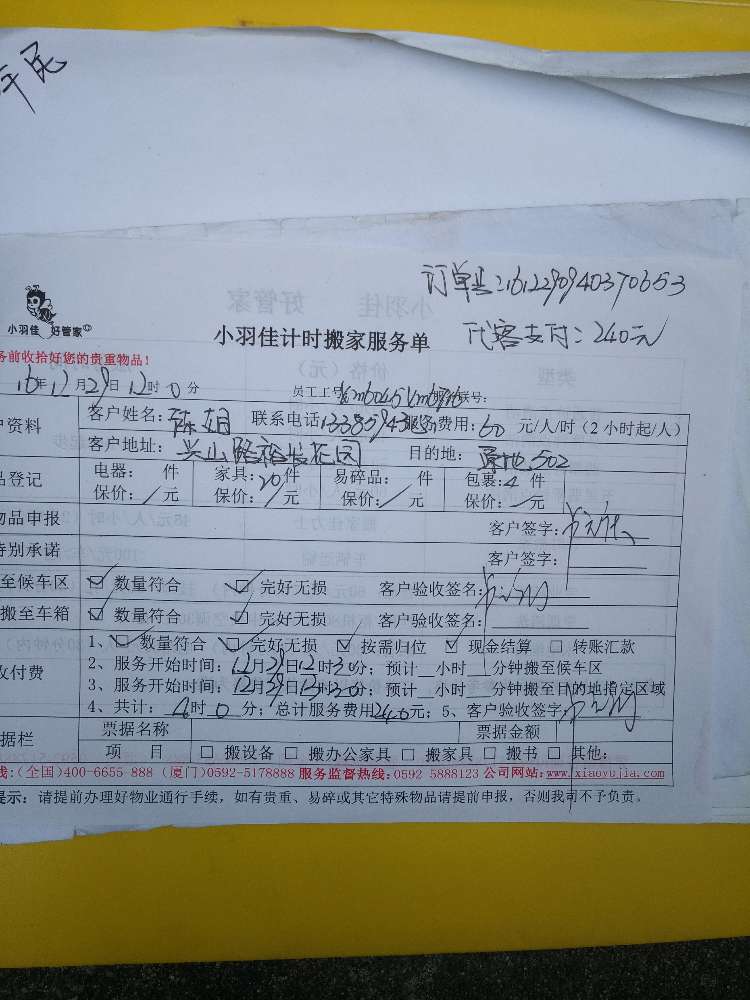 订单号:1612290940370653
代客支付:240元
小羽佳 好管家
小羽佳计时搬家服务单
务前收拾好您的贵重物品!
16年12月29日12时0分 员工工号: 联号:
户资料 客户姓名:陈 联系电话 服务费用:60元/人/时(2小时起/人)
客户地址:兴山路裕发花园 目的地:原地.502
品登记 电器: 件 家具:20件 易碎品: 件 包裹:4件
保价:/元 保价:/元 保价:/元 保价:/元
物品申报 客户签字:
特别承诺 客户签字:
至候车区 ☑ 数量符合 ☑ 完好无损 客户验收签名:
搬至车箱 ☑ 数量符合 ☑ 完好无损 客户验收签名:
1、☑ 数量符合 ☑ 完好无损 ☑ 按需归位 ☑ 现金结算 □ 转账汇款
收付费 2、服务开始时间:12月29日12时30分;预计__小时__分钟搬至候车区
3、服务开始时间:12月29日13时30分;预计__小时__分钟搬至目的地指定区域
4、共计:4时0分;总计服务费用240元;5、客户验收签字:
据栏 票据名称 票据金额
项 目 □ 搬设备 □ 搬办公家具 □ 搬家具 □ 搬书 □ 其他:
线:(全国)400-6655 888 (厦门)0592-5178888 服务监督热线:0592 5888123 公司网站:www.xiaoyujia.com
提示:请提前办理好物业通行手续,如有贵重、易碎或其它特殊物品请提前申报,否则我司不予负责。